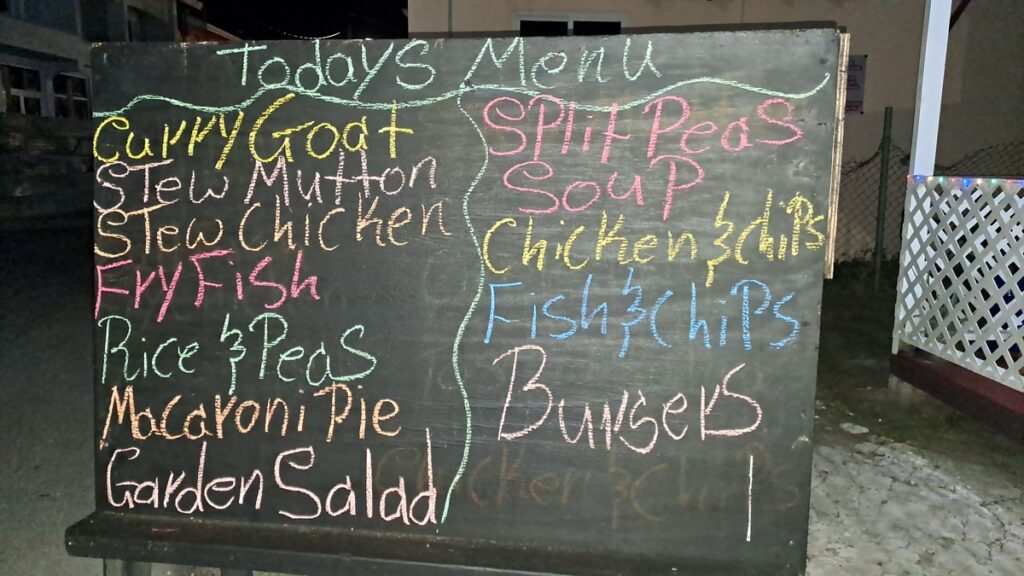 Todays Menu
Curry Goat
Stew Mutton
Stew Chicken
Fry Fish
Rice & Peas
Macaroni Pie
Garden Salad
Split Peas
Soup
Chicken & Chips
Fish & Chips
Burgers
Chicken & Chips